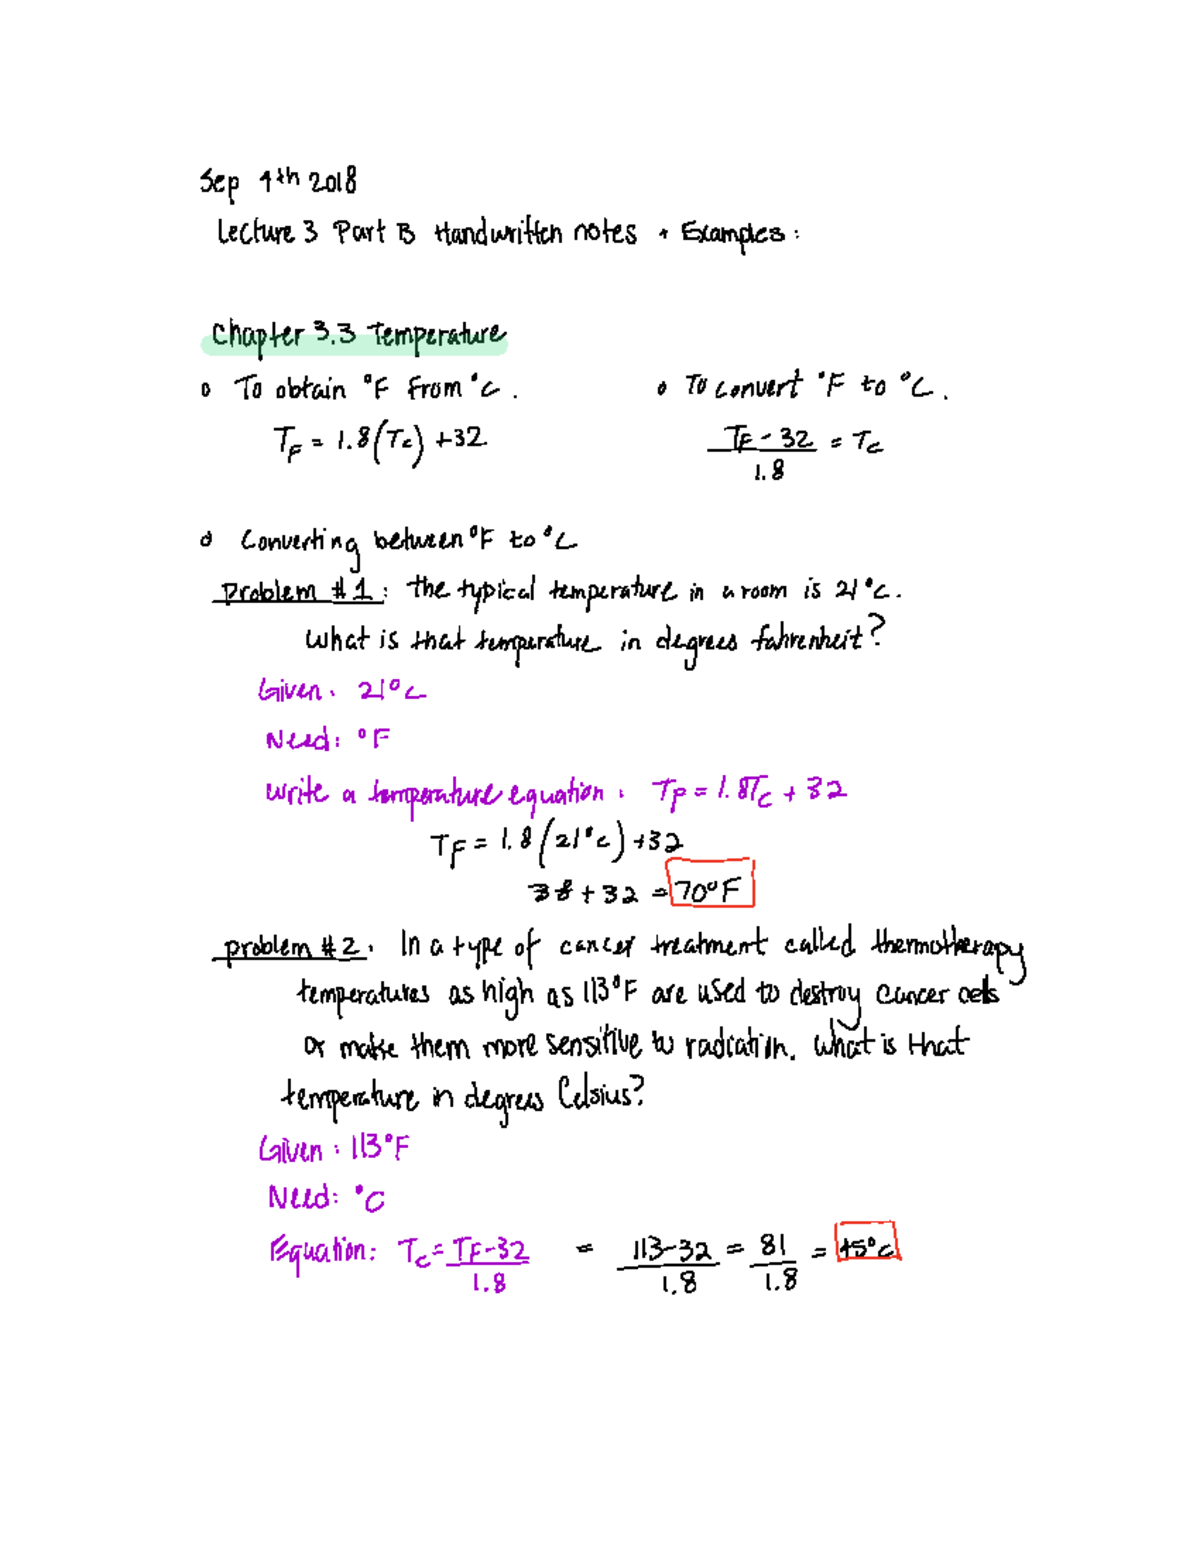 Sep 4th 2018
Lecture 3 Part B Handwritten notes + Examples:
Chapter 3.3 Temperature
o To obtain °F from °C.
o To convert °F to °C.
T_F = 1.8(T_C) + 32
T_F - 32 / 1.8 = T_C
o Converting between °F to °C
Problem #1: the typical temperature in a room is 21°C.
What is that temperature in degrees fahrenheit?
Given: 21°C
Need: °F
Write a temperature equation: T_F = 1.8T_C + 32
T_F = 1.8(21°C) + 32
38 + 32 = 70°F
problem #2: In a type of cancer treatment called thermotherapy
temperatures as high as 113°F are used to destroy cancer cells
or make them more sensitive to radiation. What is that
temperature in degrees Celsius?
Given: 113°F
Need: °C
Equation: T_C = T_F - 32 / 1.8 = 113 - 32 / 1.8 = 81 / 1.8 = 45°C